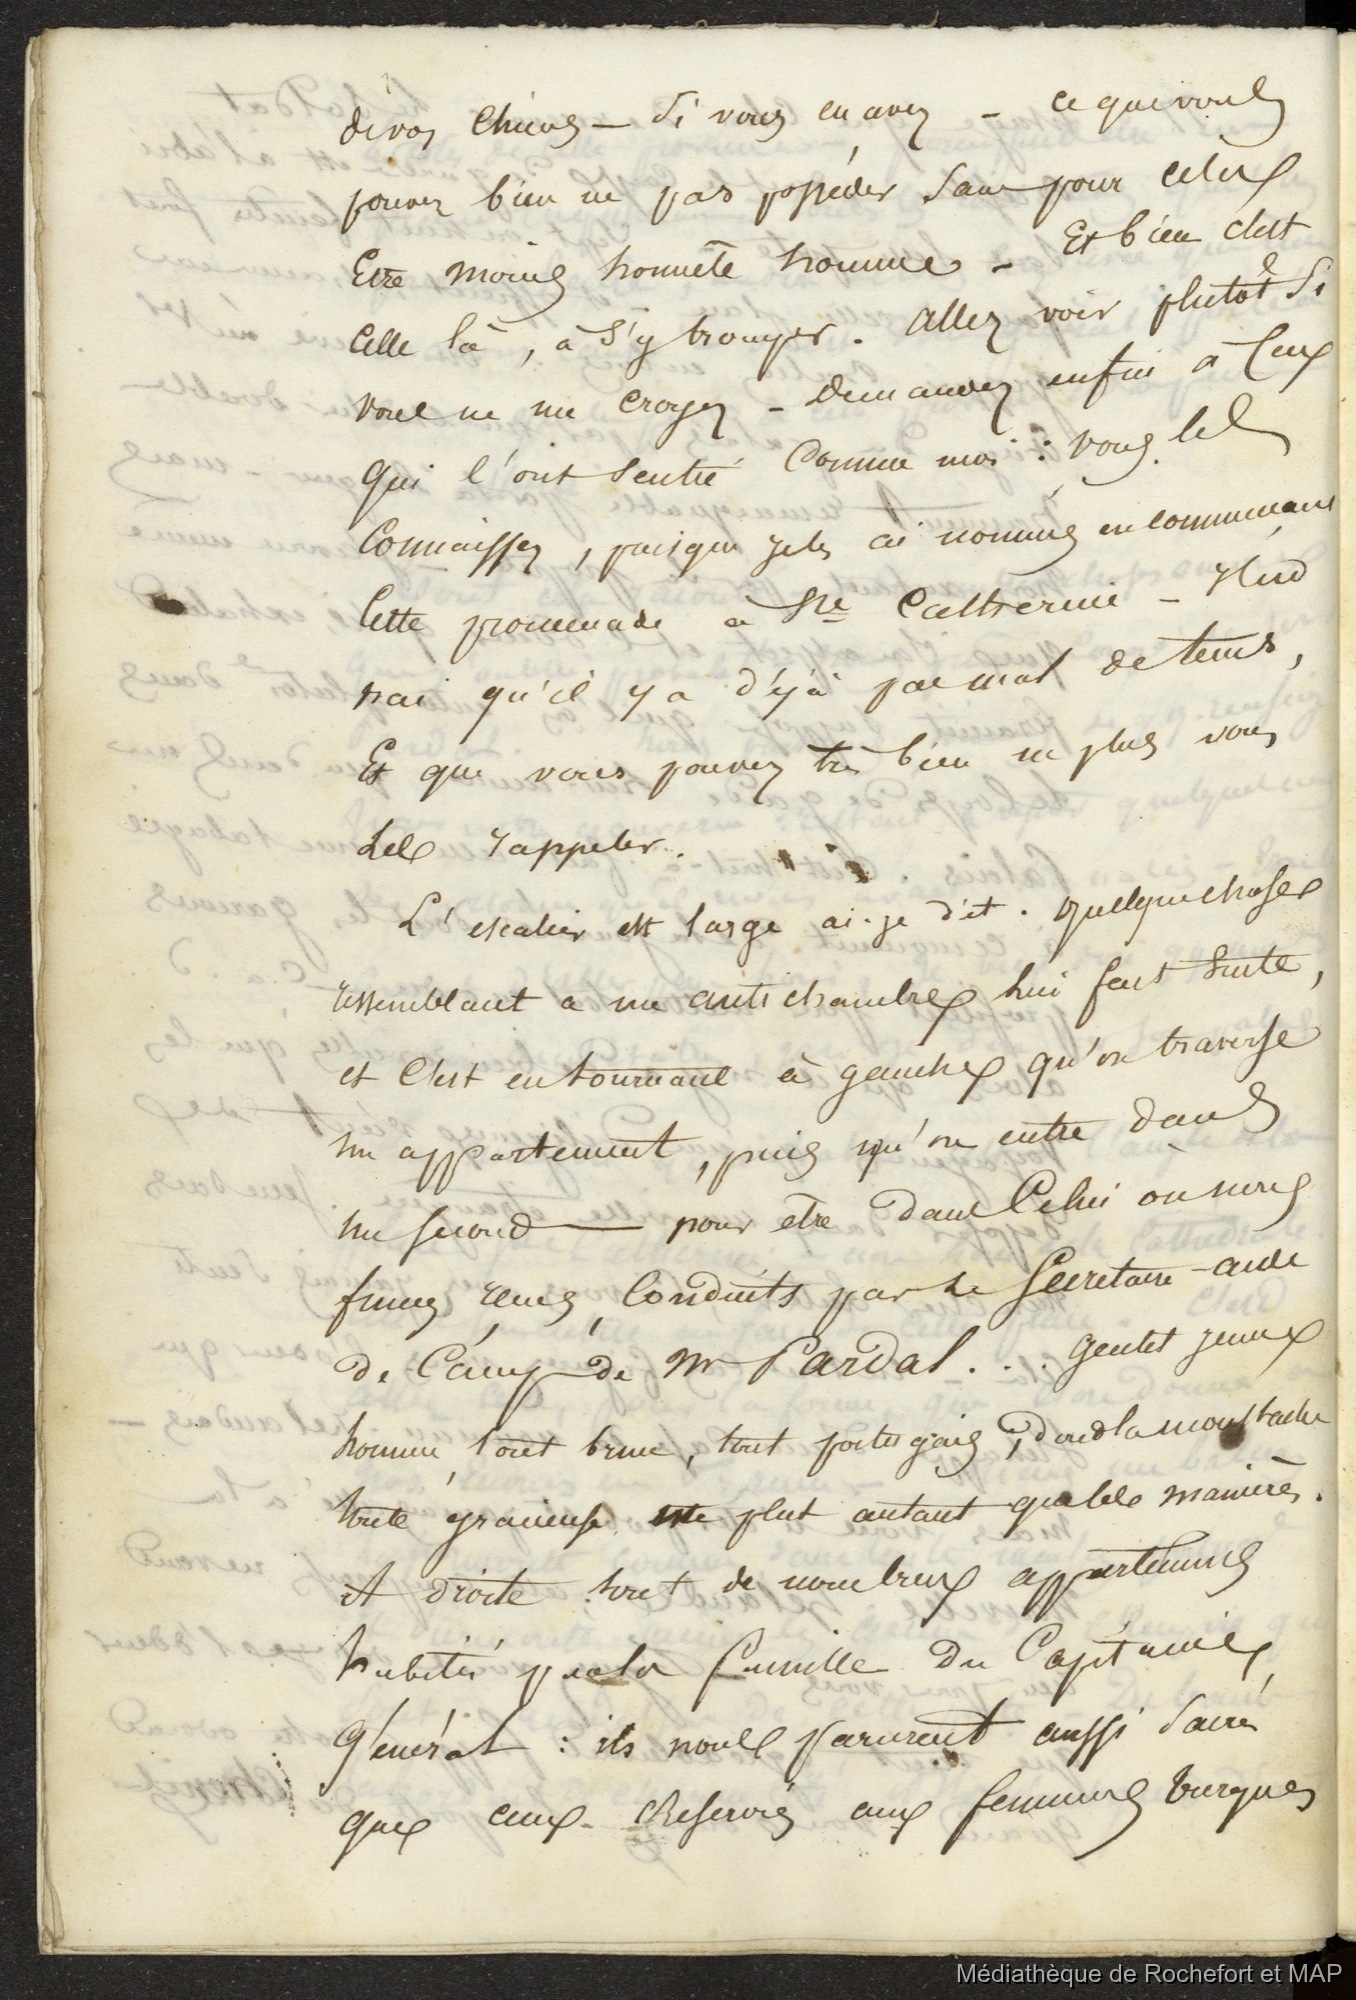 de vos chiens — si vous en avez — ce que vous
pouvez bien ne pas posséder sans pour cela
Etre moins honnête homme — Et bien c'est
celle là, à s'y tromper. allez voir plutôt si
vous ne me croyez — demandez enfin à ceux
qui l'ont sentie comme moi : vous les
connaissez, puisque je les ai nommés en commençant
cette promenade à Ste Catherine — Il est
vrai qu'il y a déjà pas mal de tems,
Et que vous pouvez très bien ne plus vous
les rappeler.
L'escalier est large ai-je dit. quelque chose
ressemblant à une antichambre lui fait suite,
et c'est en tournant à gauche qu'on traverse
un appartement, puis qu'on entre dans
un second — pour être dans celui où nous
fumes reçus, conduits par le Secretaire - aide
de Camp de Mr Pardal . . . gentil jeune
homme, tout brun, tout portugais, dont la moustache
toute gracieuse me plut autant que les manières.
A droite sont de nombreux appartemens
habités par la famille du Capitaine
Général : ils nous parurent aussi sacrés
que ceux réservés aux femmes turques
Médiathèque de Rochefort et MAP